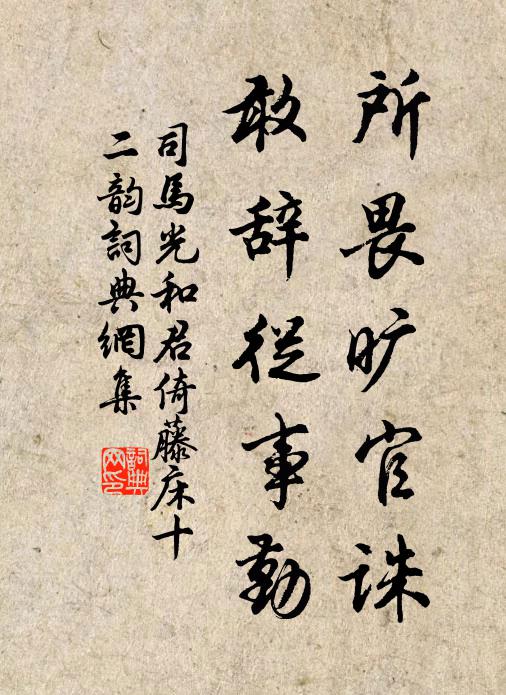 所畏旷官诛
敢辞從事勤
司馬光和君倚藤床十
二韵詞典網集
詞典
网印